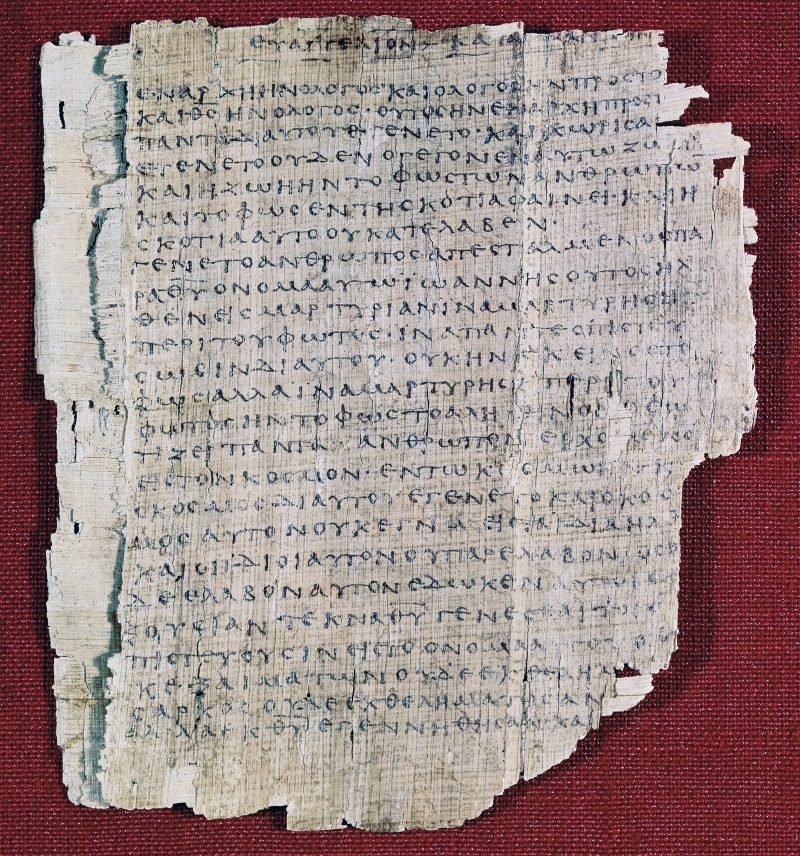 ΕΥΑΓΓΕΛΙΟΝ ΚΑΤΑ
ΕΝΑΡΧΗΗΝΟΛΟΓΟϹΚΑΙΟΛΟΓΟϹΗΝΠΡΟϹΤΟ
ΚΑΙΘ̅Ϲ̅ΗΝΟΛΟΓΟϹ·ΟΥΤΟϹΗΝΕΝΑΡΧΗΠΡΟϹΤ
ΠΑΝΤΑΔΙΑΥΤΟΥΕΓΕΝΕΤΟ·ΚΑΙΧΩΡΙϹΑ
ΕΓΕΝΕΤΟΟΥΔΕΝΟΓΕΓΟΝΕΝΕΝΑΥΤΩΖΩ
ΚΑΙΗΖΩΗΗΝΤΟΦΩϹΤΩΝΑΝΘΡΩΠΩ̅
ΚΑΙΤΟΦΩϹΕΝΤΗϹΚΟΤΙΑΦΑΙΝΕΙ·ΚΑΙΗ
ϹΚΟΤΙΑΑΥΤΟΟΥΚΑΤΕΛΑΒΕΝ·
ΕΓΕΝΕΤΟΑΝΘΡΩΠΟϹΑΠΕϹΤΑΛΜΕΝΟϹΠΑ
ΡΑΘ̅Υ̅ΟΝΟΜΑΑΥΤΩΙΩΑΝΝΗϹΟΥΤΟϹΗΛ
ΘΕΝΕΙϹΜΑΡΤΥΡΙΑΝΙΝΑΜΑΡΤΥΡΗϹΗ
ΠΕΡΙΤΟΥΦΩΤΟϹ·ΙΝΑΠΑΝΤΕϹΠΙϹΤΕΥ
ϹΩϹΙΝΔΙΑΥΤΟΥ·ΟΥΚΗΝΕΚΕΙΝΟϹΤΟ
ΦΩϹΑΛΛΑΙΝΑΜΑΡΤΥΡΗϹΗΠΕΡΙΤΟΥ
ΦΩΤΟϹΗΝΤΟΦΩϹΤΟΑΛΗΘΙΝΟΝΟΦΩ
ΤΙΖΕΙΠΑΝΤΑΑΝΘΡΩΠΟΝΕΡΧΟΜΕΝΟ
ΕΙϹΤΟΝΚΟϹΜΟΝ·ΕΝΤΩΚΟϹΜΩΗΝ
ΟΚΟϹΜΟϹΔΙΑΥΤΟΥΕΓΕΝΕΤΟΚΑΙΟΚΟϹ
ΜΟϹΑΥΤΟΝΟΥΚΕΓΝΩΕΙϹΤΑΙΔΙΑΗΛ
ΚΑΙΟΙΙΔΙΟΙΑΥΤΟΝΟΥΠΑΡΕΛΑΒΟΝ·ΟϹΟ
ΔΕΕΛΑΒΟΝΑΥΤΟΝΕΔΩΚΕΝΑΥΤΟΙϹ
ΞΟΥϹΙΑΝΤΕΚΝΑΘ̅Υ̅ΓΕΝΕϹΘΑΙΤΟΙϹ
ΠΙϹΤΕΥΟΥϹΙΝΕΙϹΤΟΟΝΟΜΑ
ΚΕΞΑΙΜΑΤΩΝΟΥΔΕΕΚΘΕΛΗΜ
ϹΑΡΚΟϹΟΥΔΕΕΚΘΕΛΗΜΑΤΟϹΑΝ
ΑΛΛΑΕΚΘ̅Υ̅ΕΓΕΝΝΗΘΗϹΑΝ·ΚΑΙ